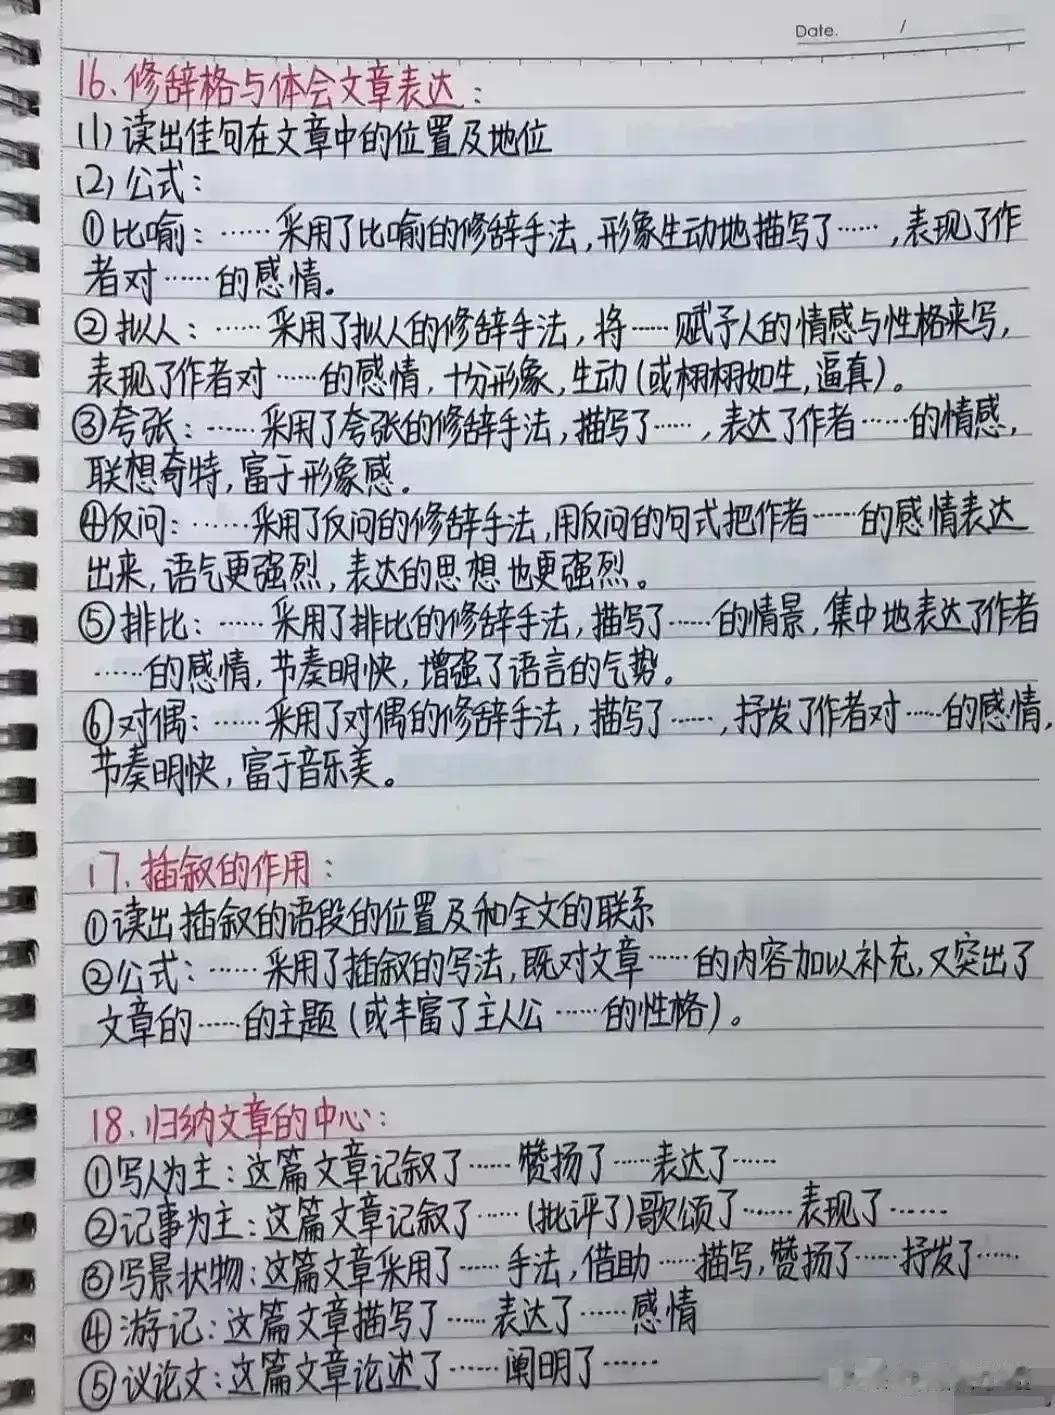 Date. /
16、修辞格与体会文章表达：
(1)读出佳句在文章中的位置及地位
(2)公式：
①比喻：……采用了比喻的修辞手法，形象生动地描写了……，表现了作
者对……的感情。
②拟人：……采用了拟人的修辞手法，将……赋予人的情感与性格来写，
表现了作者对……的感情，十分形象，生动(或栩栩如生，逼真)。
③夸张：……采用了夸张的修辞手法，描写了……，表达了作者……的情感，
联想奇特，富于形象感。
④反问：……采用了反问的修辞手法，用反问的句式把作者……的感情表达
出来，语气更强烈，表达的思想也更强烈。
⑤排比：……采用了排比的修辞手法，描写了……的情景，集中地表达了作者
……的感情，节奏明快，增强了语言的气势。
⑥对偶：……采用了对偶的修辞手法，描写了……，抒发了作者对……的感情，
节奏明快，富于音乐美。
17、插叙的作用：
①读出插叙的语段的位置及和全文的联系
②公式：……采用了插叙的写法，既对文章……的内容加以补充，又突出了
文章的……的主题(或丰富了主人公……的性格)。
18、归纳文章的中心：
①写人为主：这篇文章记叙了……赞扬了……表达了……
②记事为主：这篇文章记叙了……(批评了)歌颂了……表现了……
③写景状物：这篇文章采用了……手法，借助……描写，赞扬了……抒发了……
④游记：这篇文章描写了……表达了……感情
⑤议论文：这篇文章论述了……阐明了……